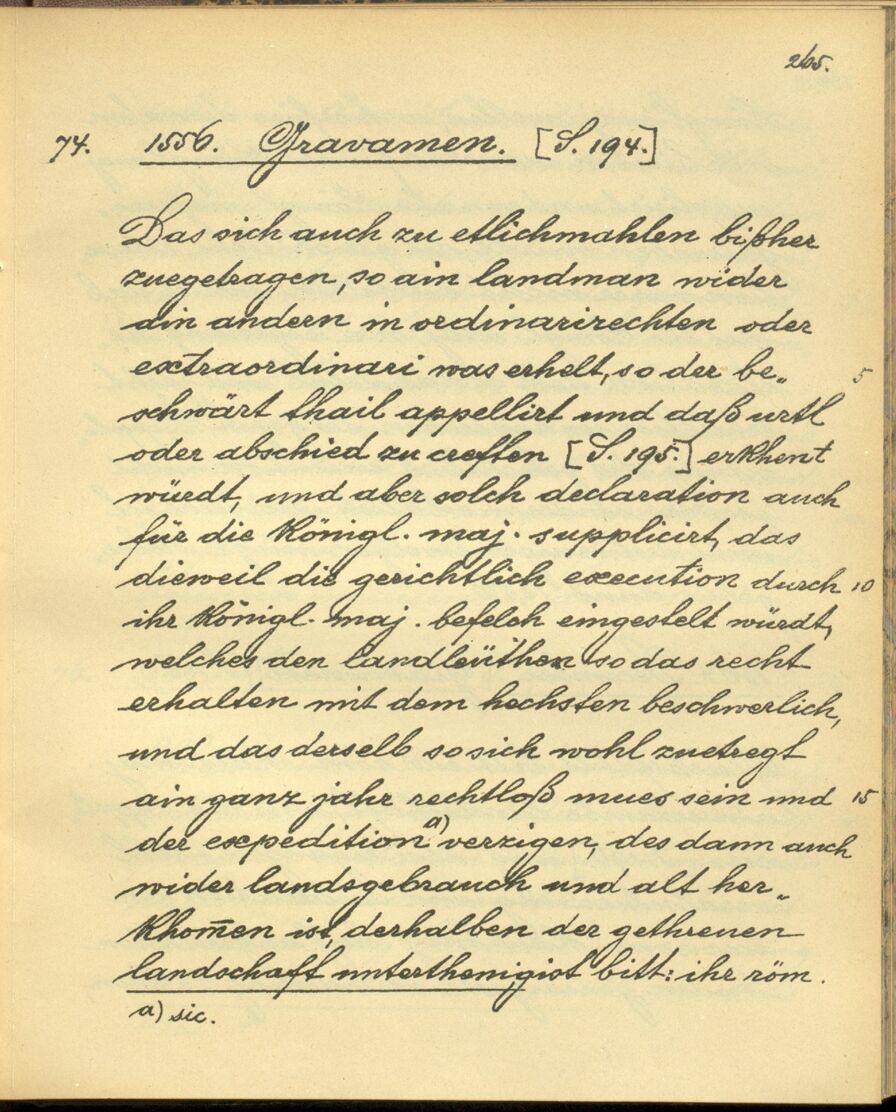 265.
74. 1556. Gravamen. [S. 194.]
Das sich auch zu etlichmahlen bißher
zuegetragen, so ain landman wider
ain andern in ordinarirechten oder
extraordinari was erhelt, so der be„ 5
schwärt thail appellirt und daß urtl
oder abschied zu creften [S. 195.] erkhent
würdt, und aber solch declaration auch
für die königl. maj. supplicirt, das
dieweil die gerichtlich execution durch 10
ihr königl. maj. befelch eingestelt würdt,
welches den landleüthen so das recht
erhalten mit dem hechsten beschwerlich,
und das derselb so sich wohl zuetregt
ain ganz jahr rechtloß mues sein und 15
der expedition a) verzigen, des dann auch
wider landsgebrauch und alt her„
khom̄en ist, derhalben der gethreuen
landschaft unterthenigist bitt: ihr röm.
a) sic.